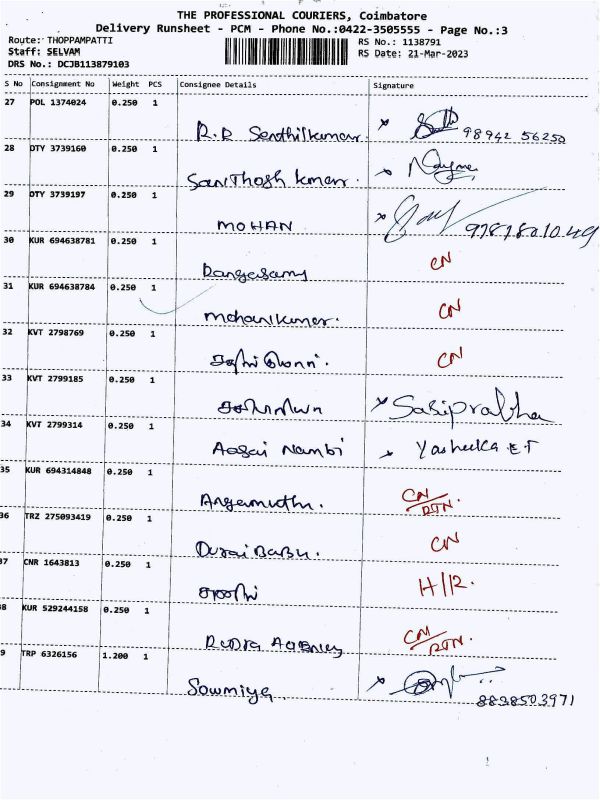 THE PROFESSIONAL COURIERS, Coimbatore
Delivery Runsheet - PCM - Phone No.:0422-3505555 - Page No.:3
Route: THOPPAMPATTI RS No.: 1138791
Staff: SELVAM RS Date: 21-Mar-2023
DRS No.: DCJB113879103
S No Consignment No Weight PCS Consignee Details Signature
27 POL 1374024 0.250 1
R.R Senthilkumar 98942 56250
28 DTY 3739160 0.250 1
Santhosh kmar.
29 DTY 3739197 0.250 1
MOHAN
30 KUR 694638781 0.250 1 CN
Rangasamy
31 KUR 694638784 0.250 1 CN
mohankumar.
32 KVT 2798769 0.250 1 CN
33 KVT 2799185 0.250 1
Sasiprabha
34 KVT 2799314 0.250 1
Aasai Nambi
35 KUR 694314848 0.250 1 CN/RTN.
Angamuthu.
36 TRZ 275093419 0.250 1 CN
Durai Babu.
37 CNR 1643813 0.250 1 H/12.
38 KUR 529244158 0.250 1 CN/RTN.
Rudra
39 TRP 6326156 1.200 1
Sowmiya 8898503971